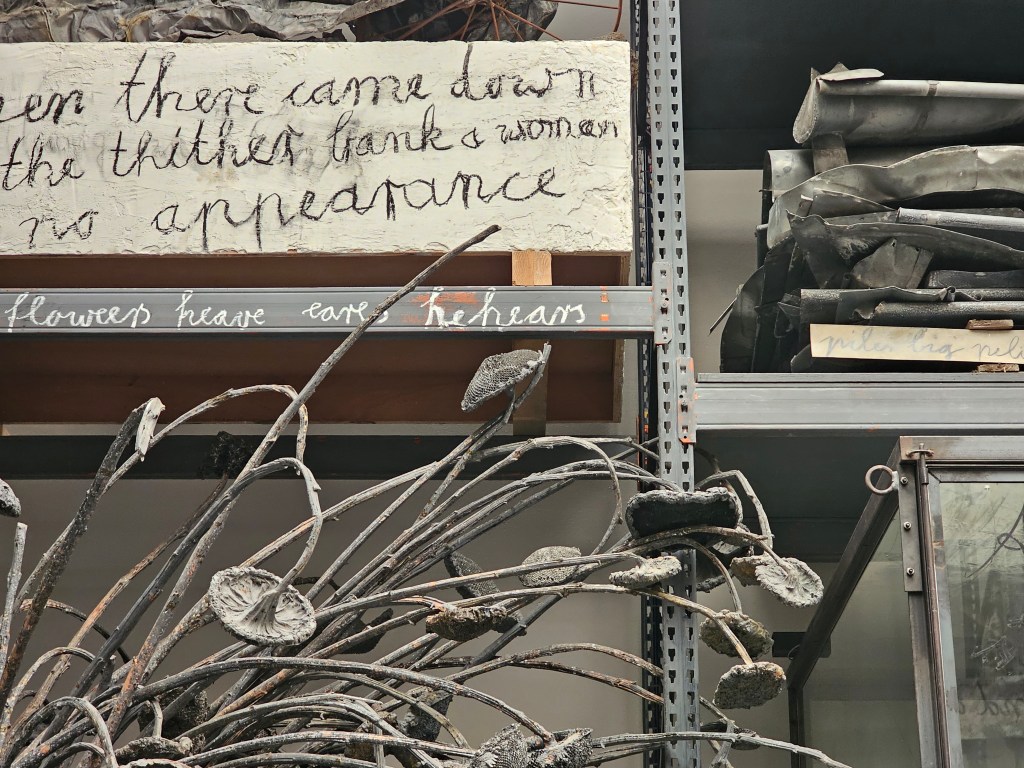 en there came down
the thither bank a woman
no appearance
flowers heave eares hehears
piles big pel